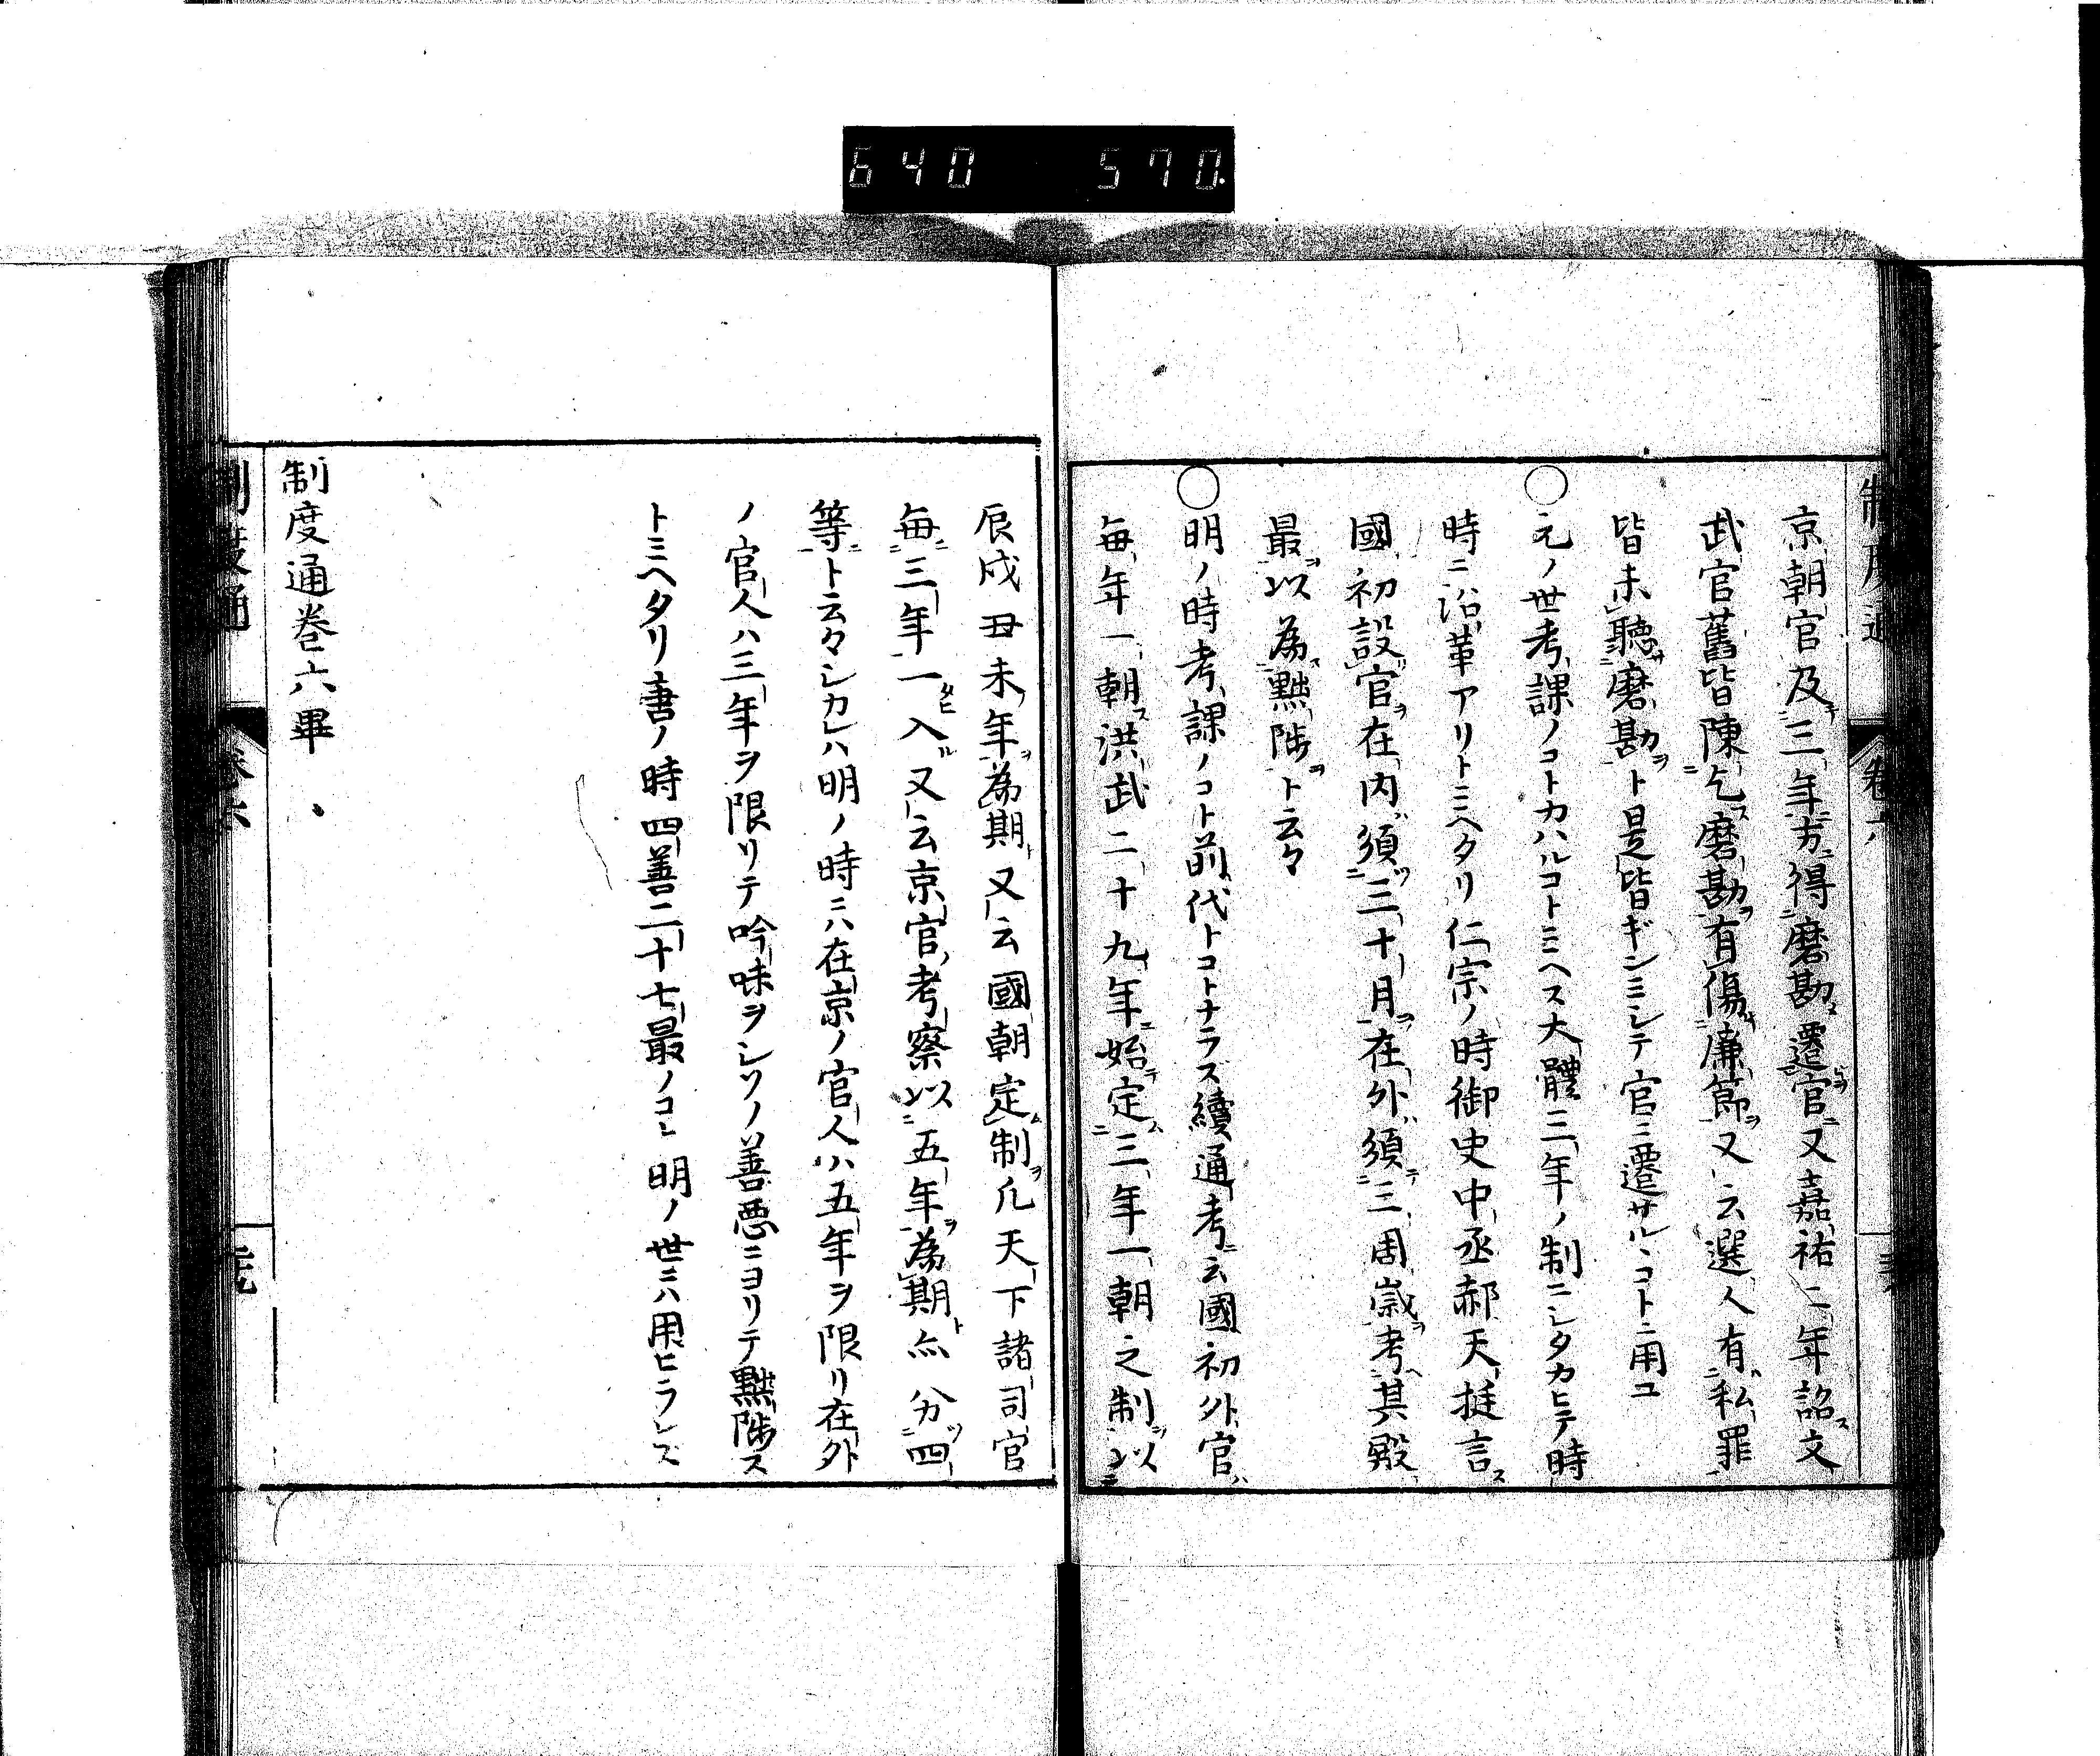 640 570.
京朝官及三年方得磨勘遷官又嘉祐二年詔文
武官舊皆陳乞磨勘有傷廉節又云選人有私罪
皆未聽磨勘ト是皆ギンミシテ官ニ遷サルヽコトニ用ユ
○元ノ世考課ノコトカハルコトミヘス大體三年ノ制ニシタカヒテ時
時ニ沿革アリトミヘタリ仁宗ノ時御史中丞郝天挺言
國初設官在内須三十月在外須三周歳考其殿
最以為黜陟ト云々
○明ノ時考課ノコト前代トコトナラズ續通考云國初外官
毎年一朝洪武二十九年始定三年一朝之制以
辰戌丑未年為期又云國朝定制凡天下諸司官
毎三年一入又云京官考察以五年為期亦分四
等ト云々シカレハ明ノ時ニハ在京ノ官人ハ五年ヲ限リ在外
ノ官人ハ三年ヲ限リテ吟味ヲシソノ善惡ニヨリテ黜陟ス
トミヘタリ唐ノ時四善二十七最ノコト明ノ世ニハ用ヒラレズ
制度通巻六畢
制度通 巻六